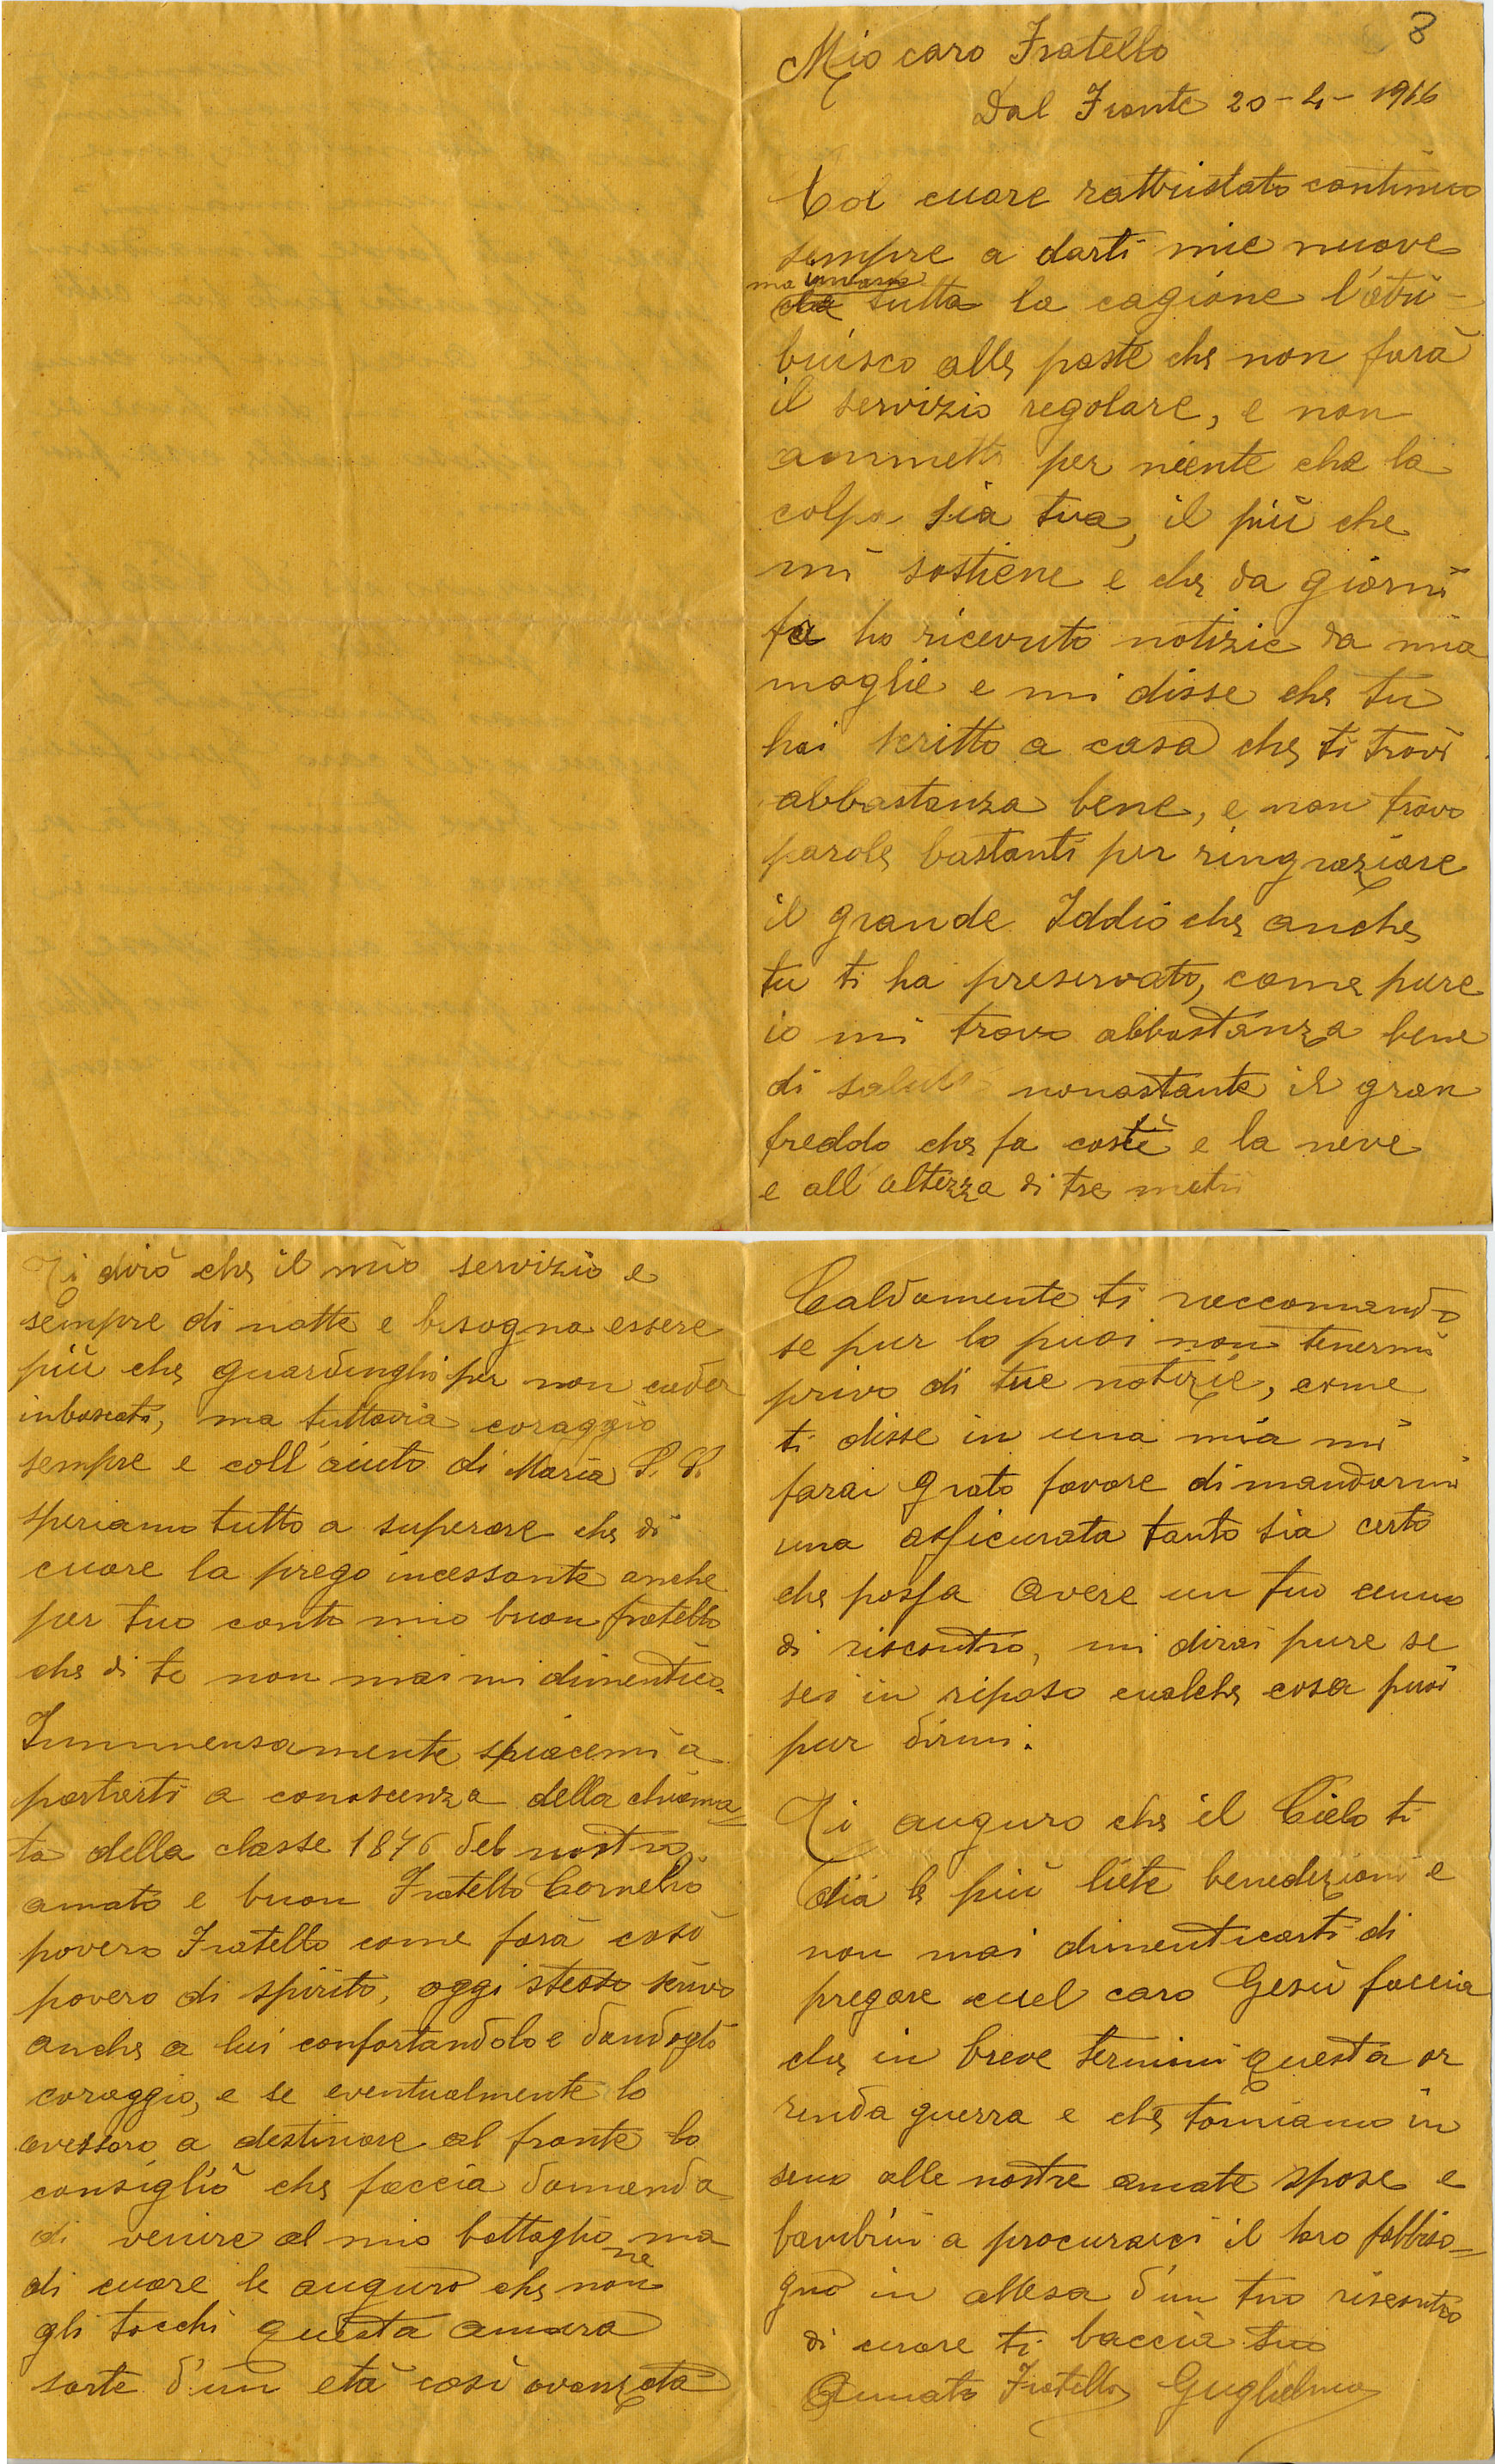 8
Mio caro Fratello
Dal Fronte 20-4-1916
Col cuore rattristato continuo
sempre a darti mie nuove
ma invano
che tutta la cagione l'atri-
buisco alle poste che non farà
il servizio regolare, e non
ammetto per niente che la
colpa sia tua, il più che
mi sostiene e che da giorni
fa ho ricevuto notizie da mia
moglie e mi disse che tu
hai scritto a casa che ti trovi
abbastanza bene, e non trovo
parole bastanti per ringraziare
il grande Iddio che anche
tu ti ha preservato, come pure
io mi trovo abbastanza bene
di salute nonostante il gran
freddo che fa costì e la neve
e all'altezza di tre metri
Ti dirò che il mio servizio e
sempre di notte e bisogna essere
più che guardinghi per non cader
inboscati, ma tuttavia coraggio
sempre e coll'aiuto di Maria S. S.
speriamo tutto a superare che di
cuore la prego incessante anche
per tuo conto mio buon fratello
che di te non mai mi dimentico.
Immmensamente spiacemi a
portarti a conoscenza della chiama=
ta della classe 1876 del nostro
amato e buon Fratello Cornelio
povero Fratello come farà cosò
povero di spirito, oggi stesso scrivo
anche a lui confortandolo e dandogli
coraggio, e se eventualmente lo
avessero a destinare al fronte lo
consiglio che faccia domanda
di venire al mio battaglio ma
ne
di cuore le auguro che non
gli tocchi questa amara
sorte d'un età così avanzata
Caldamente ti raccomando
se pur lo puoi non tenermi
privo di tue notizie, come
ti disse in una mia mi
farai grato favore di mandarmi
una assicurata tanto sia certo
che possa avere un tuo cenno
di riscontro, mi dirai pure se
sei in riposo cualche cosa puoi
pur dirmi.
Ti auguro che il Cielo ti
dia le più liete benedizioni e
non mai dimenticarti di
pregare cuel caro Gesù faccia
che in breve termini questa or
renda guerra e che torniamo in
seno alle nostre amate spose e
bambini a procurarci il loro fabbiso=
gno in attesa d'un tuo riscontro
di cuore ti baccia tuo
Amato Fratello Guglielmo